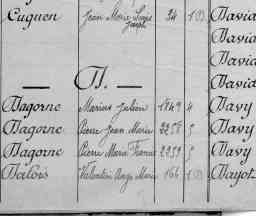 Cuguen Jean Marie Louis Joseph 34 1(D) David
David
David
David
— D. — David
Dagorne Marius Julien 1849 4 Davy
Dagorne Pierre Jean Marie 2258 5 Davy
Dagorne Pierre Marie Francois 2259 5 Davy
Dalois Valentin Ange Marie 166 1(D) Dayot